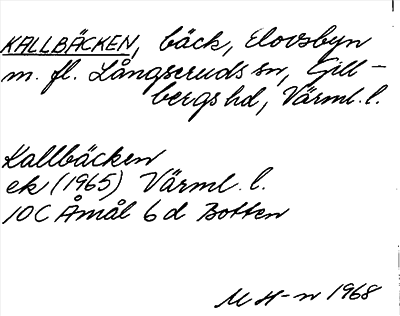 KALLBÄCKEN, bäck, Elovsbyn
m. fl. Långseruds sn, Gill-
bergs hd, Värml. l.
Kallbäcken
ek (1965) Värml. l.
10C Åmål 6d Botten
M H-n 1968